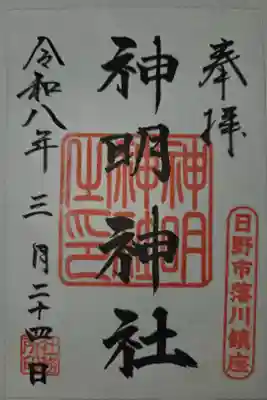 奉拝
日野市落川鎮座
神明神社
神明神社之印
令和八年三月二十四日